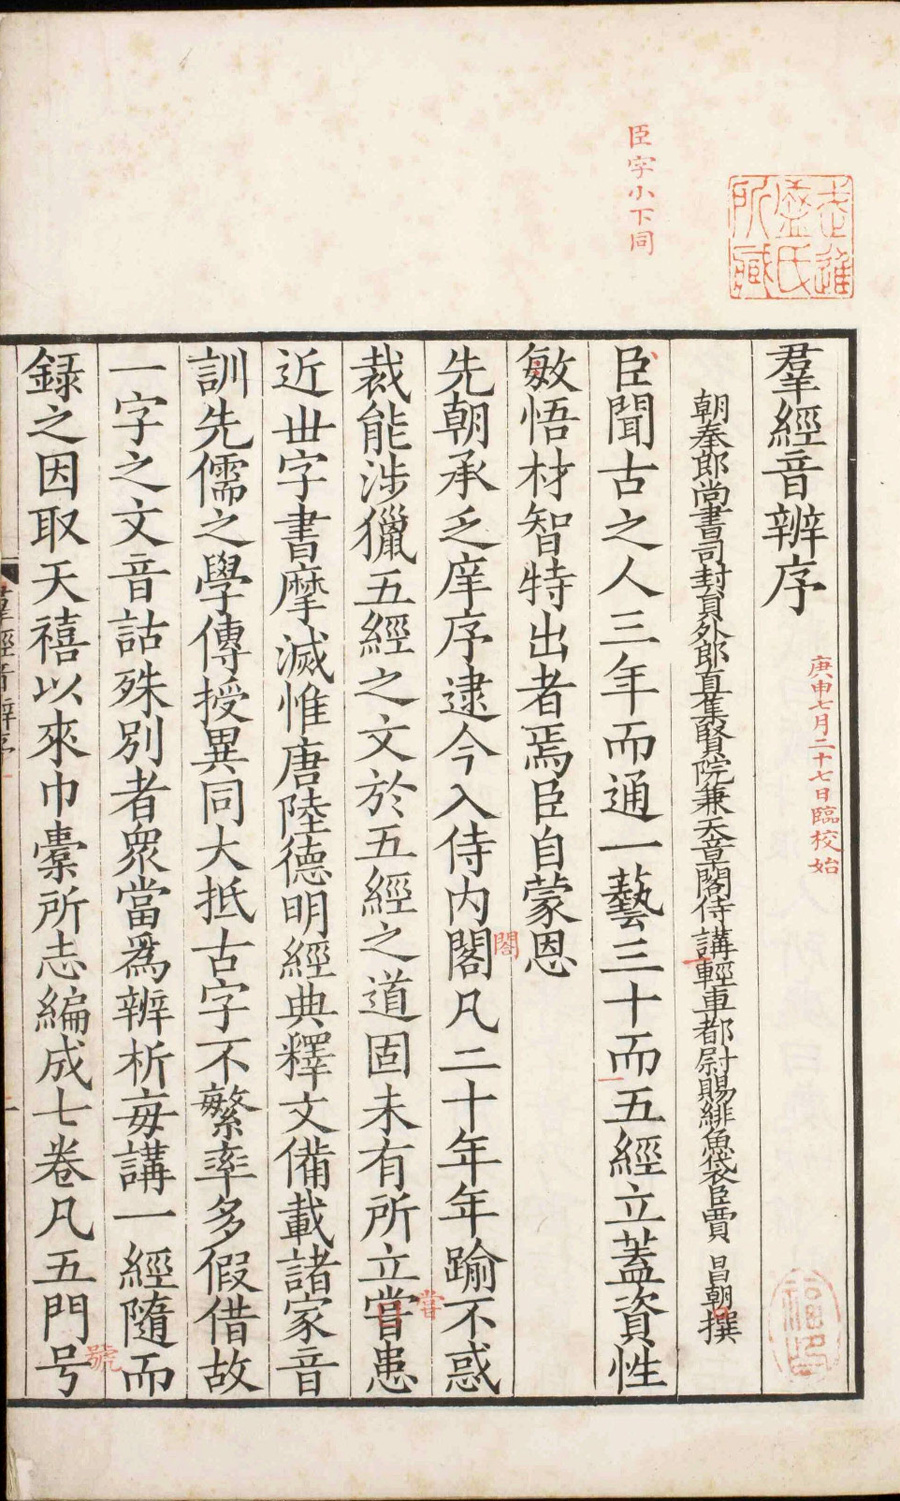 臣字小下同
武進盛氏所藏
羣經音辨序
庚申七月二十七日臨校始
朝奉郎尚書司封員外郎直集賢院兼天章閣侍講輕車都尉賜緋魚袋臣賈 昌朝撰
臣聞古之人三年而通一藝三十而五經立蓋資性
敏悟材智特出者焉臣自蒙恩
先朝承乏庠序逮今入侍内閣凡二十年年踰不惑
閤
裁能涉獵五經之文於五經之道固未有所立嘗患
甞
近世字書摩滅惟唐陸德明經典釋文備載諸家音
訓先儒之學傳授異同大抵古字不繁率多假借故
一字之文音詁殊別者衆當爲辨析每講一經隨而
録之因取天禧以來巾橐所志編成七卷凡五門号
號
羣經音辨序